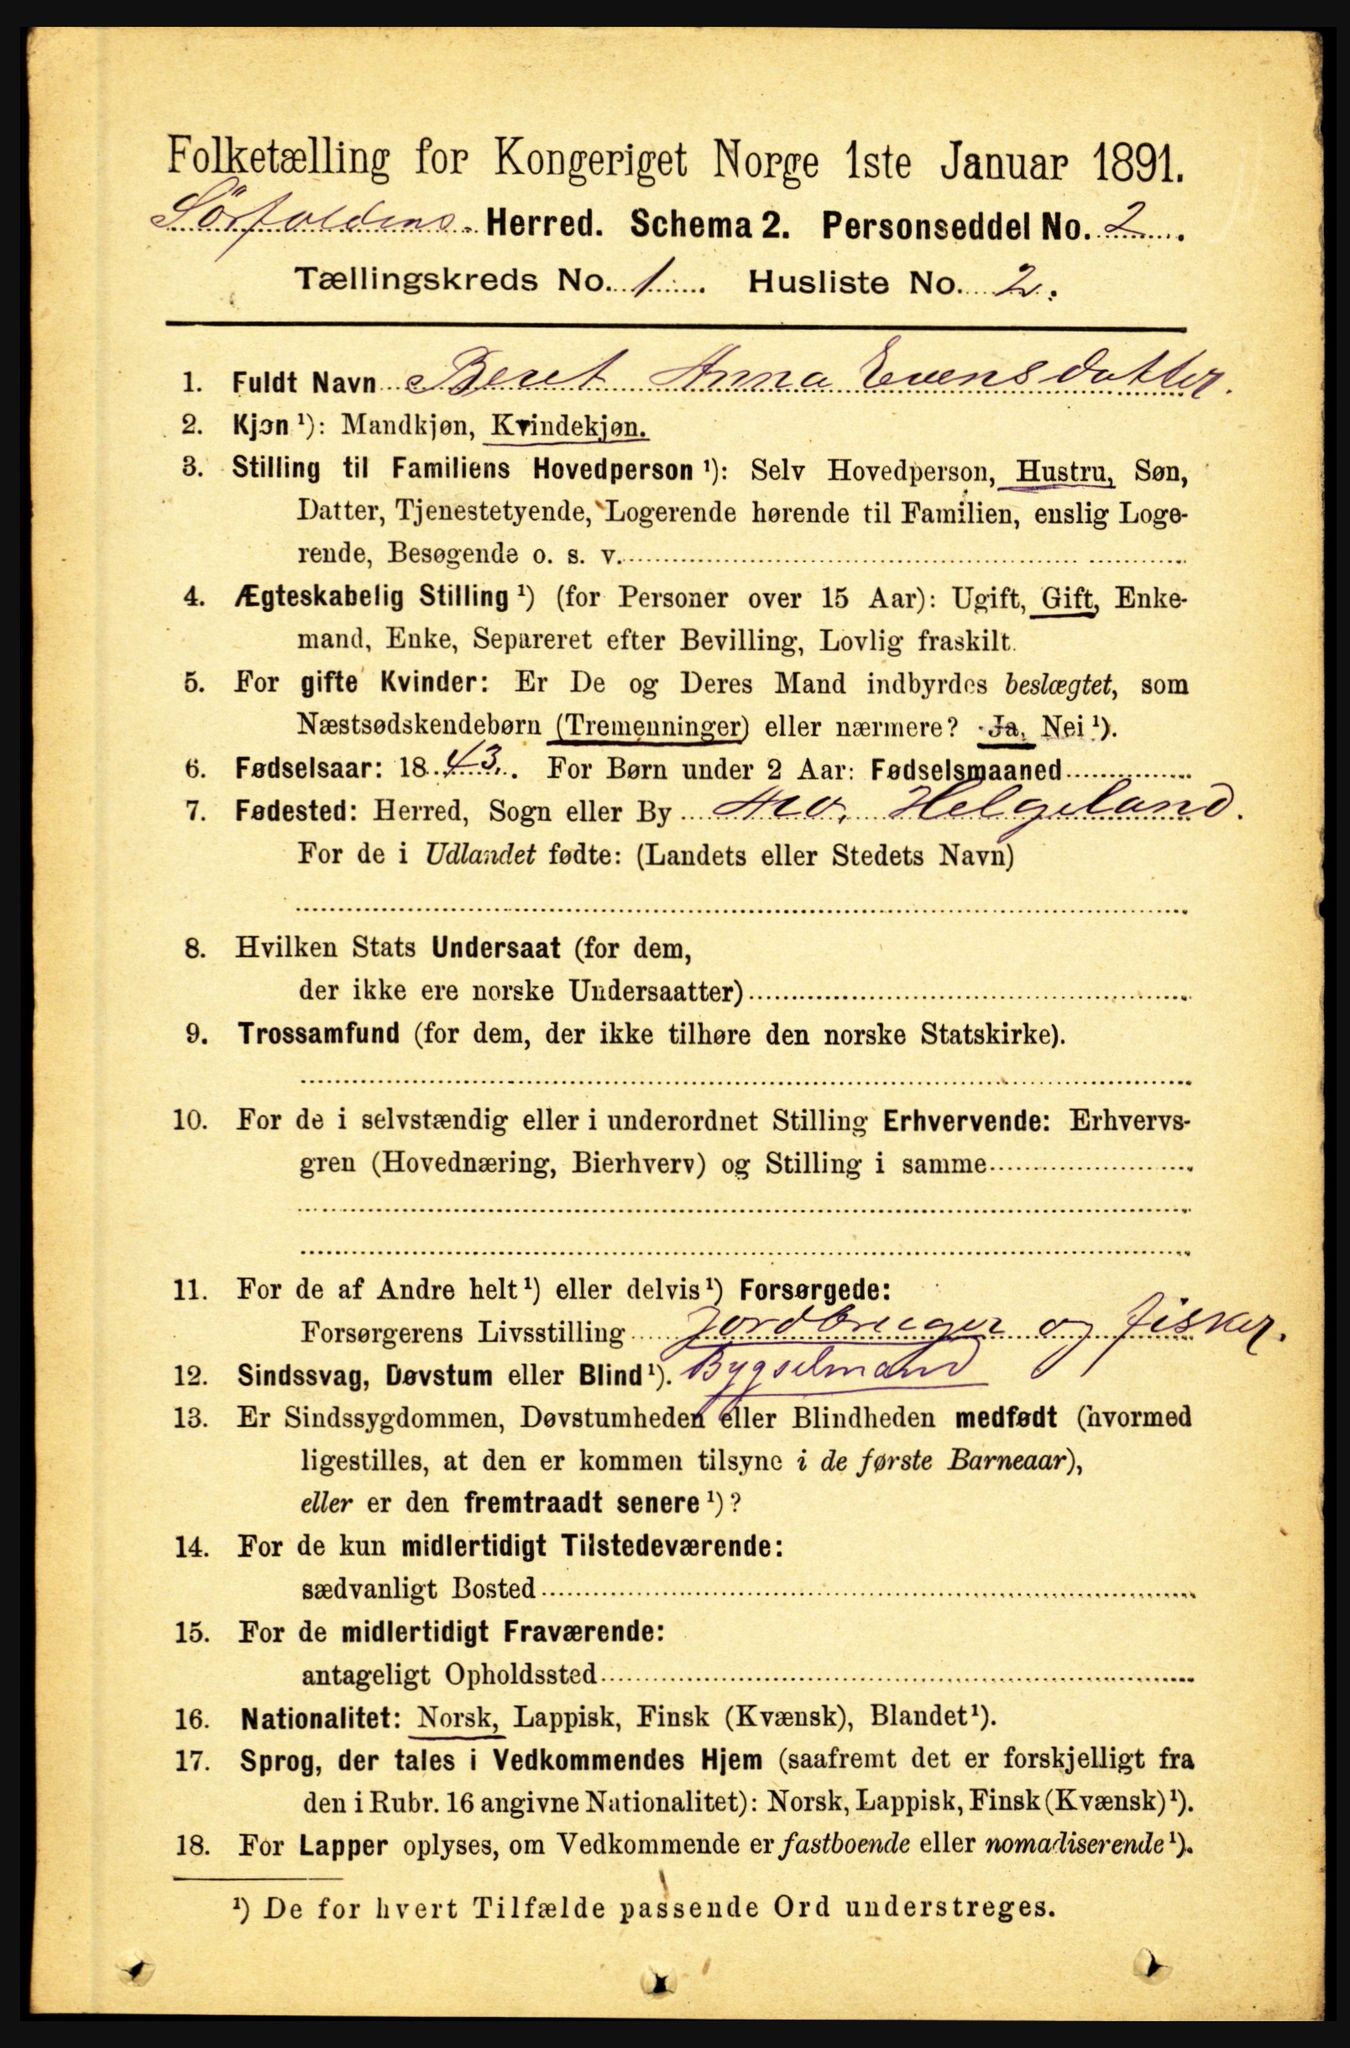 Folketælling for Kongeriget Norge 1ste Januar 1891.
Sörfoldens Herred. Schema 2. Personseddel No. 2
Tællingskreds No. 1. Husliste No. 2.
1. Fuldt Navn Beret Anna Evensdatter.
2. Kjøn ¹): Mandkjøn, Kvindekjøn.
3. Stilling til Familiens Hovedperson ¹): Selv Hovedperson, Hustru, Søn,
Datter, Tjenestetyende, Logerende hørende til Familien, enslig Loge-
rende, Besøgende o. s. v.
4. Ægteskabelig Stilling ¹) (for Personer over 15 Aar): Ugift, Gift, Enke-
mand, Enke, Separeret efter Bevilling, Lovlig fraskilt.
5. For gifte Kvinder: Er De og Deres Mand indbyrdes beslægtet, som
Næstsødskendebørn (Tremenninger) eller nærmere? Ja, Nei ¹).
6. Fødselsaar: 1843. For Børn under 2 Aar: Fødselsmaaned
7. Fødested: Herred, Sogn eller By Mo, Helgeland.
For de i Udlandet fødte: (Landets eller Stedets Navn)
8. Hvilken Stats Undersaat (for dem,
der ikke ere norske Undersaatter)
9. Trossamfund (for dem, der ikke tilhøre den norske Statskirke).
10. For de i selvstændig eller i underordnet Stilling Erhvervende: Erhvervs-
gren (Hovednæring, Bierhverv) og Stilling i samme
11. For de af Andre helt ¹) eller delvis ¹) Forsørgede:
Forsørgerens Livsstilling Jordbruger og fisker.
12. Sindssvag, Døvstum eller Blind ¹). Bygselmand
13. Er Sindssygdommen, Døvstumheden eller Blindheden medfødt (hvormed
ligestilles, at den er kommen tilsyne i de første Barneaar),
eller er den fremtraadt senere ¹)?
14. For de kun midlertidigt Tilstedeværende:
sædvanligt Bosted
15. For de midlertidigt Fraværende:
antageligt Opholdssted
16. Nationalitet: Norsk, Lappisk, Finsk (Kvænsk), Blandet ¹).
17. Sprog, der tales i Vedkommendes Hjem (saafremt det er forskjelligt fra
den i Rubr. 16 angivne Nationalitet): Norsk, Lappisk, Finsk (Kvænsk) ¹).
18. For Lapper oplyses, om Vedkommende er fastboende eller nomadiserende ¹).
¹) De for hvert Tilfælde passende Ord understreges.